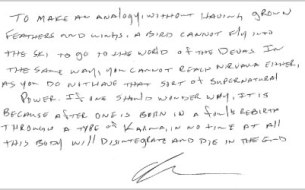 TO MAKE AN ANALOGY, WITHOUT HAVING GROWN
FEATHERS AND WINGS, A BIRD CANNOT FLY INTO
THE SKY TO GO TO THE WORLD OF THE DEVAS. IN
THE SAME WAY, YOU CANNOT REACH NIRVANA EITHER,
AS YOU DO NOT HAVE THAT SORT OF SUPERNATURAL
POWER. IF ONE SHOULD WONDER WHY, IT IS
BECAUSE AFTER ONE IS BORN IN A REBIRTH
THROUGH A TYPE OF KARMA, IN NO TIME AT ALL
THIS BODY WILL DISINTEGRATE AND DIE IN THE END